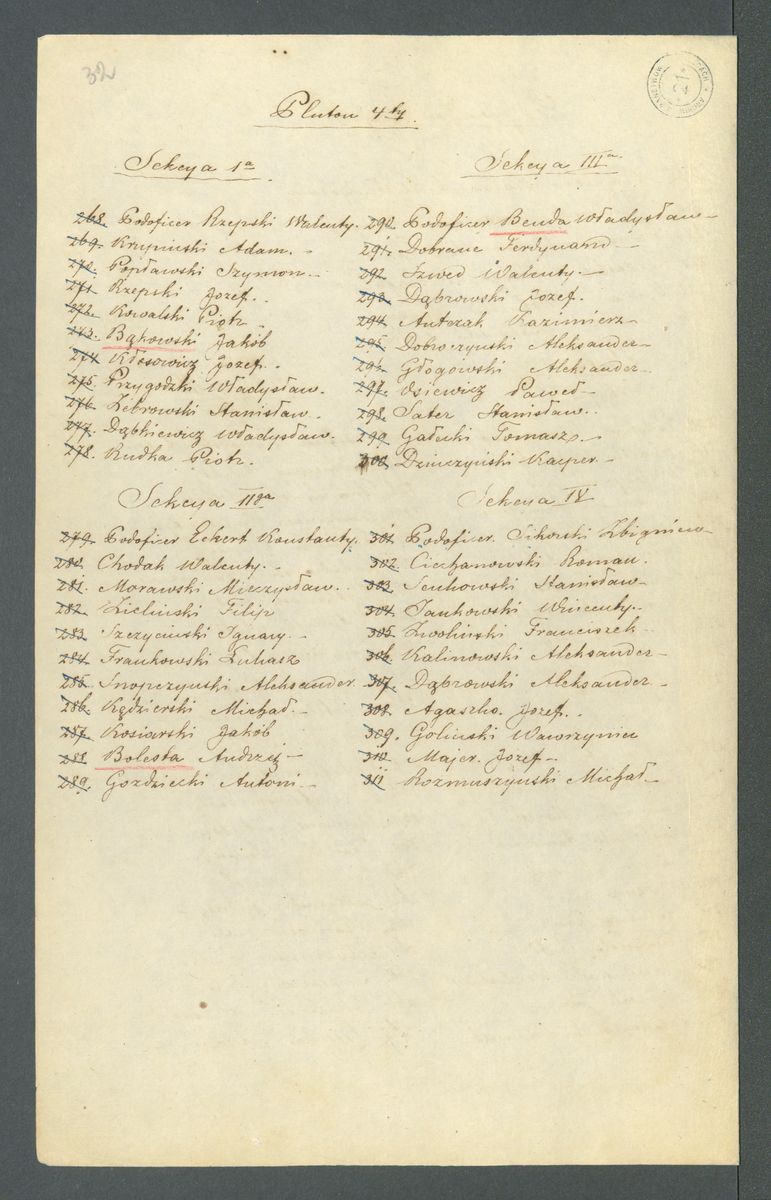 32
Pluton 4ty
Sekcya 1a
268. Podoficer Rzepski Walenty.
269. Krzypiński Adam.
270. Popławski Szymon.
271. Rzepski Jozef.
272. Kowalski Piotr
273. Bąkowski Jakób
274. Kłosowicz Jozef.
275. Przygodzki Władysław.
276. Żebrowski Stanisław.
277. Dąbkiewicz Władysław.
278. Rudka Piotr.
Sekcya IIga
279. Podoficer Eckert Konstanty.
280. Chodak Walenty.
281. Morawski Mieczysław.
282. Zieliński Filip
283. Szczyciński Ignacy.
284. Frankowski Łukasz
285. Snopczyński Aleksander
286. Kędzierski Michał.
287. Kosiarski Jakób
288. Bolesta Andrzej
289. Gozdziecki Antoni
Sekcya IIIa
290. Podoficer Benda Władysław
291. Ferdynand
292. Szwed Walenty.
293. Dąbrowski Jozef.
294. Antczak Kazimierz
295. Dobroczyński Aleksander
296. Głogowski Aleksander
297. Osiewicz Paweł
298. Sater Stanisław.
299. Gałecki Tomasz.
300. Kacper.
Sekcya IV
301. Podoficer. Sikorski Zbigniew
302. Ciechanowski Roman.
303. Senkowski Stanisław
304. Jankowski Wincenty.
305. Zwoliński Franciszek
306. Kalinowski Aleksander
307. Dąbrowski Aleksander
308. Agaszko. Jozef.
309. Goliński Wawrzyniec
310. Majer. Jozef
311. Rozmuszyński Michał